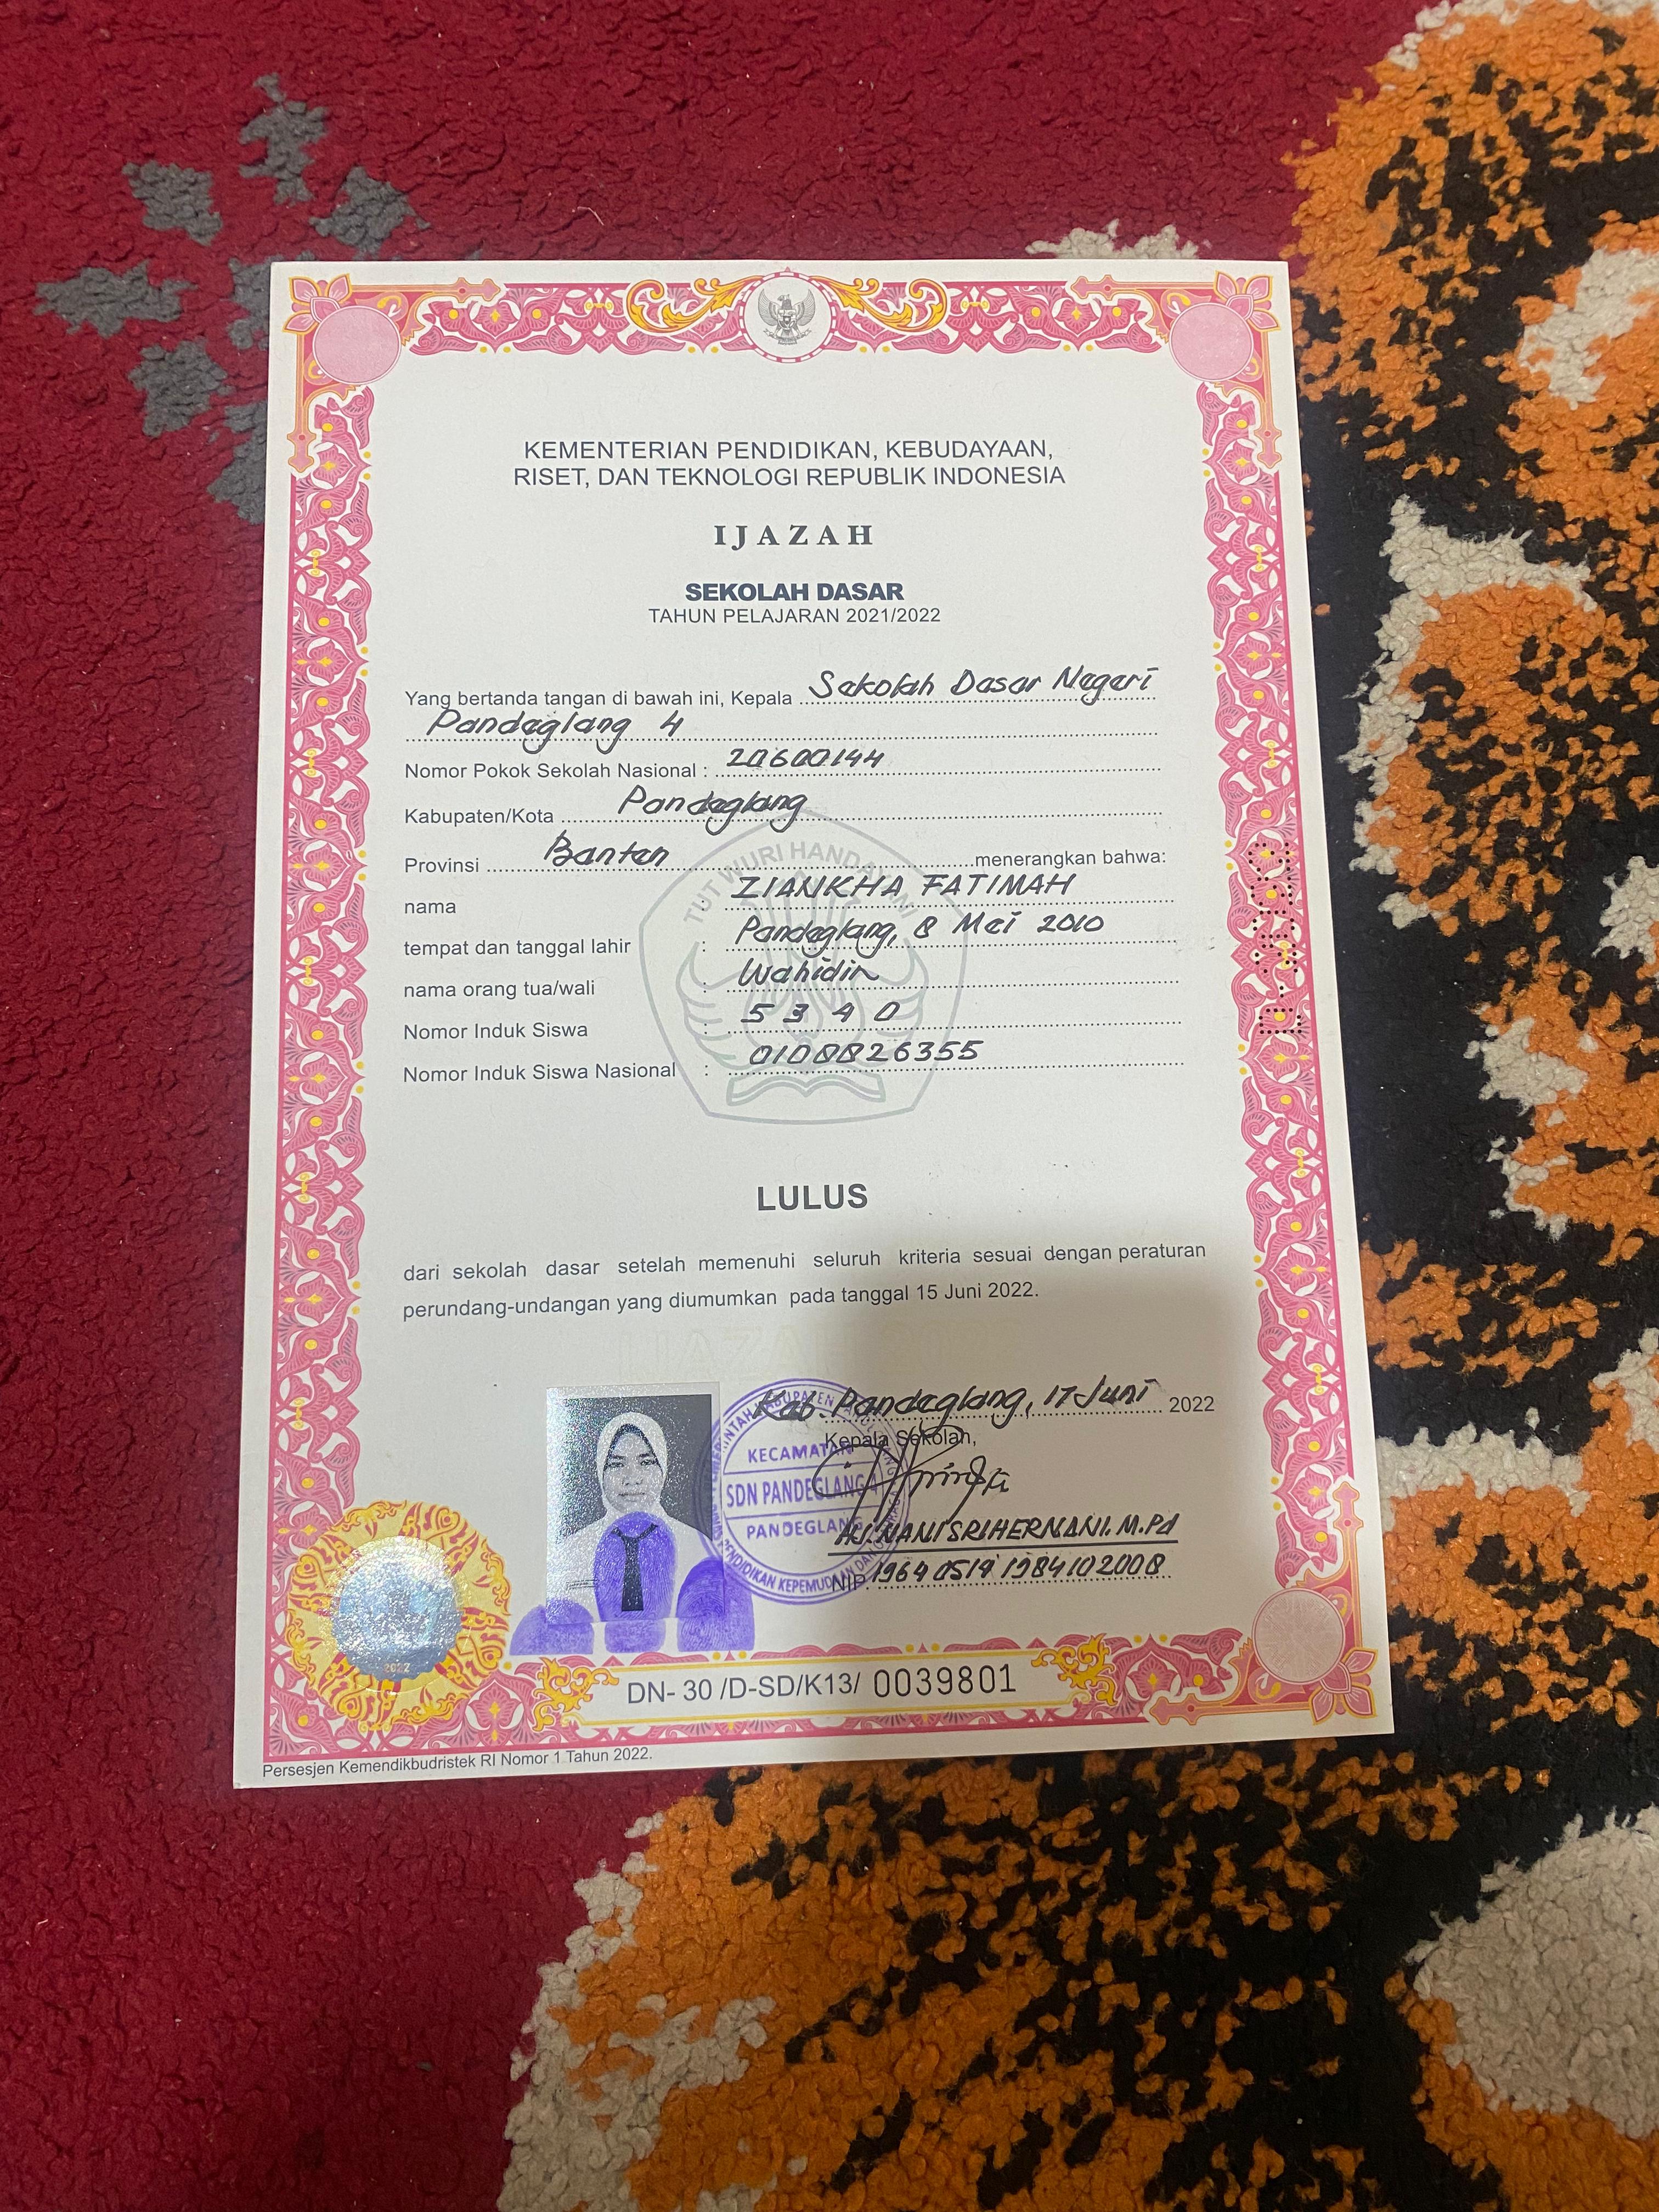 KEMENTERIAN PENDIDIKAN, KEBUDAYAAN,
RISET, DAN TEKNOLOGI REPUBLIK INDONESIA
IJAZAH
SEKOLAH DASAR
TAHUN PELAJARAN 2021/2022
Yang bertanda tangan di bawah ini, Kepala Sekolah Dasar Negeri
Pandeglang 4
Nomor Pokok Sekolah Nasional : 20600144
Kabupaten/Kota Pandeglang
Provinsi Banten menerangkan bahwa:
nama : ZIANKHA FATIMAH
tempat dan tanggal lahir : Pandeglang, 8 Mei 2010
nama orang tua/wali : Wahidin
Nomor Induk Siswa : 5340
Nomor Induk Siswa Nasional : 0108826355
TUT WURI HANDAYANI
LULUS
dari sekolah dasar setelah memenuhi seluruh kriteria sesuai dengan peraturan
perundang-undangan yang diumumkan pada tanggal 15 Juni 2022.
Kab. Pandeglang, 17 Juni 2022
Kepala Sekolah,
KECAMATAN
SDN PANDEGLANG 4
PANDEGLANG
Hj. NANI SRIHERNANI. M.Pd
NIP. 19640514 198410 2008
2022
DN- 30 /D-SD/K13/ 0039801
Persesjen Kemendikbudristek RI Nomor 1 Tahun 2022.